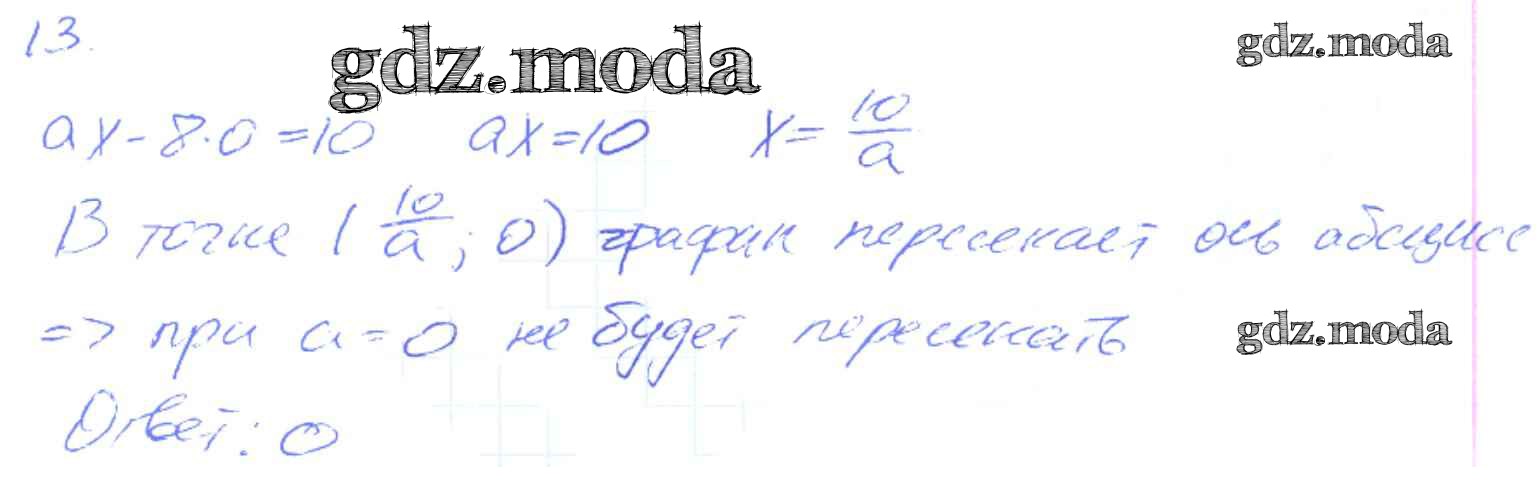 13.
gdz.moda
gdz.moda
ax - 8·0 = 10 ax = 10 x = 10/a
В точке (10/a; 0) график пересекает ось абсцисс
=> при a = 0 не будет пересекать
gdz.moda
Ответ: 0